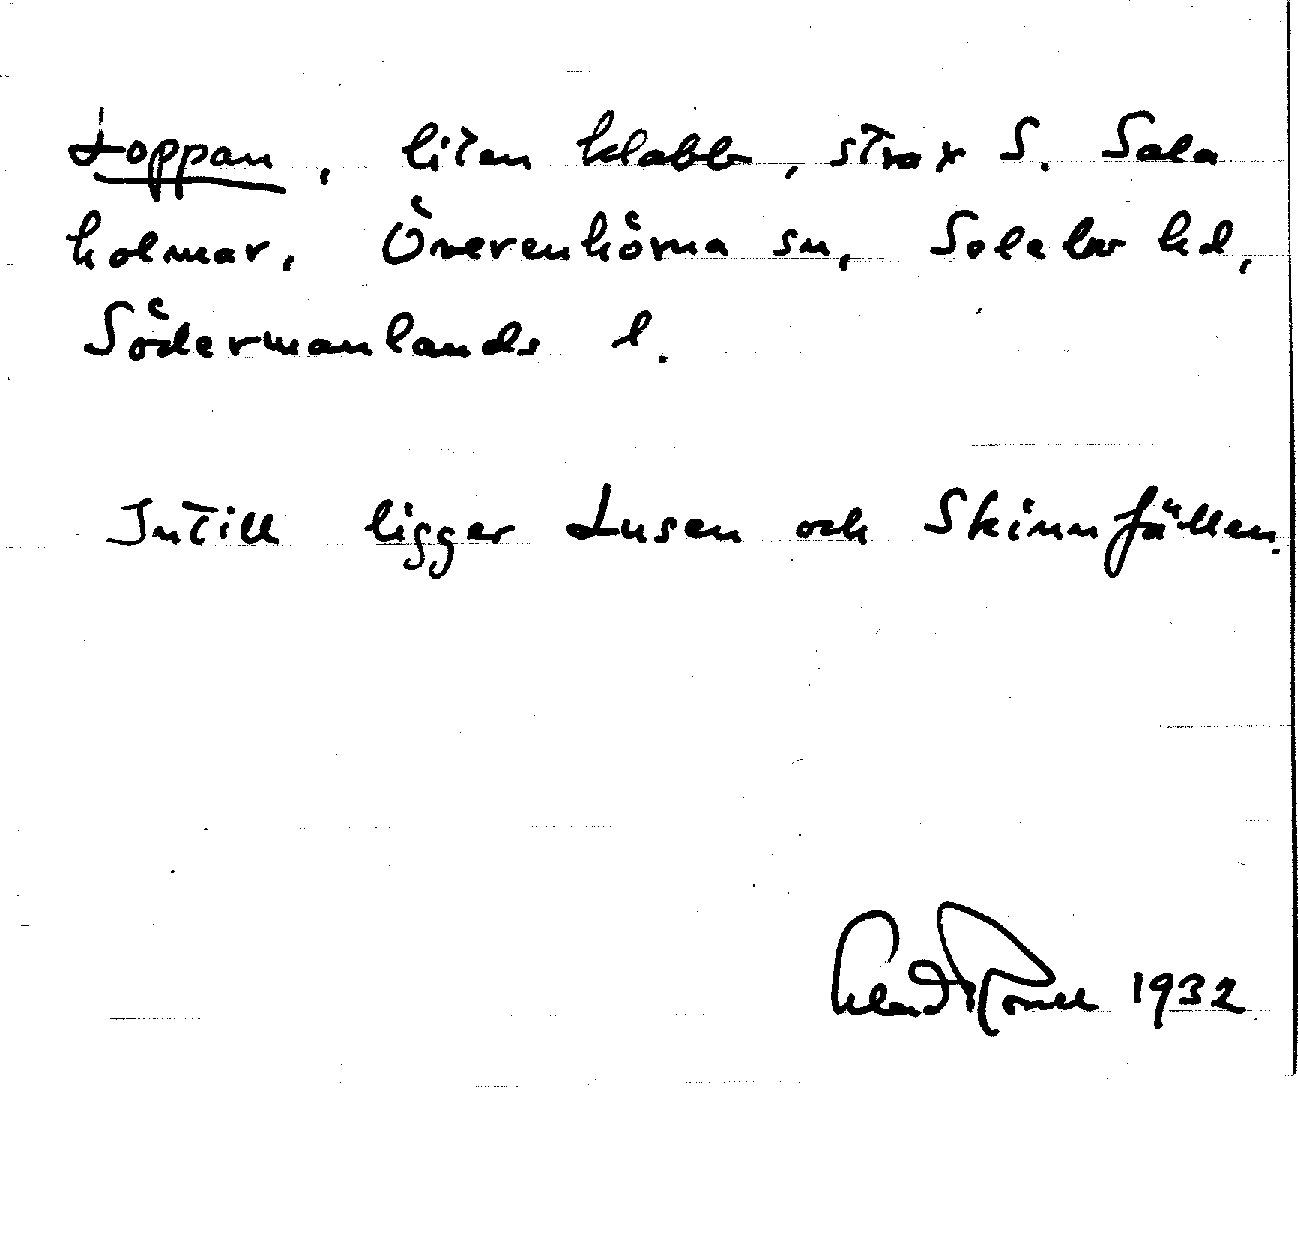 Loppan, liten klabb, strax S. Sala
holmar, Överenhörna sn, Selebo hd,
Södermanlands l.
Intill ligger Lusen och Skinnfällen.
1932